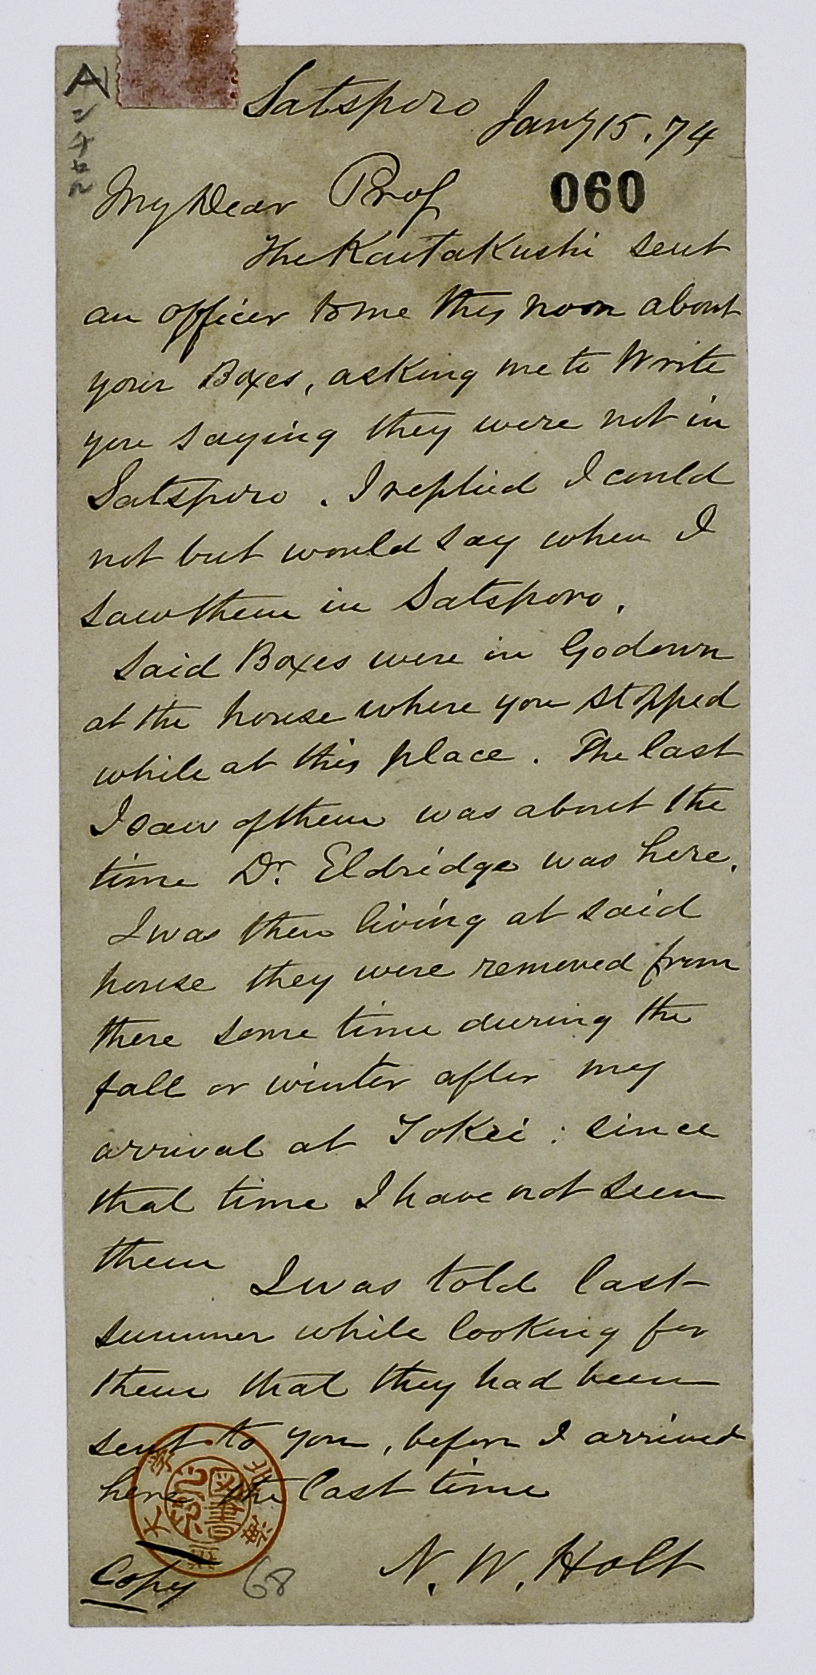 Satsporo Jany 15. 74
060
My Dear Prof
The Kaitakushi sent
an officer to me this noon about
your Boxes, asking me to Write
you saying they were not in
Satsporo. I replied I could
not but would say when I
saw them in Satsporo.
Said Boxes were in Godown
at the house where you stopped
while at this place. The last
I saw of them was about the
time Dr. Eldridge was here.
I was then living at said
house they were removed from
there some time during the
fall or winter after my
arrival at Tokei: since
that time I have not seen
them I was told last
summer while looking for
them that they had been
sent to you, before I arrived
here the last time
N. W. Holt
Copy
68